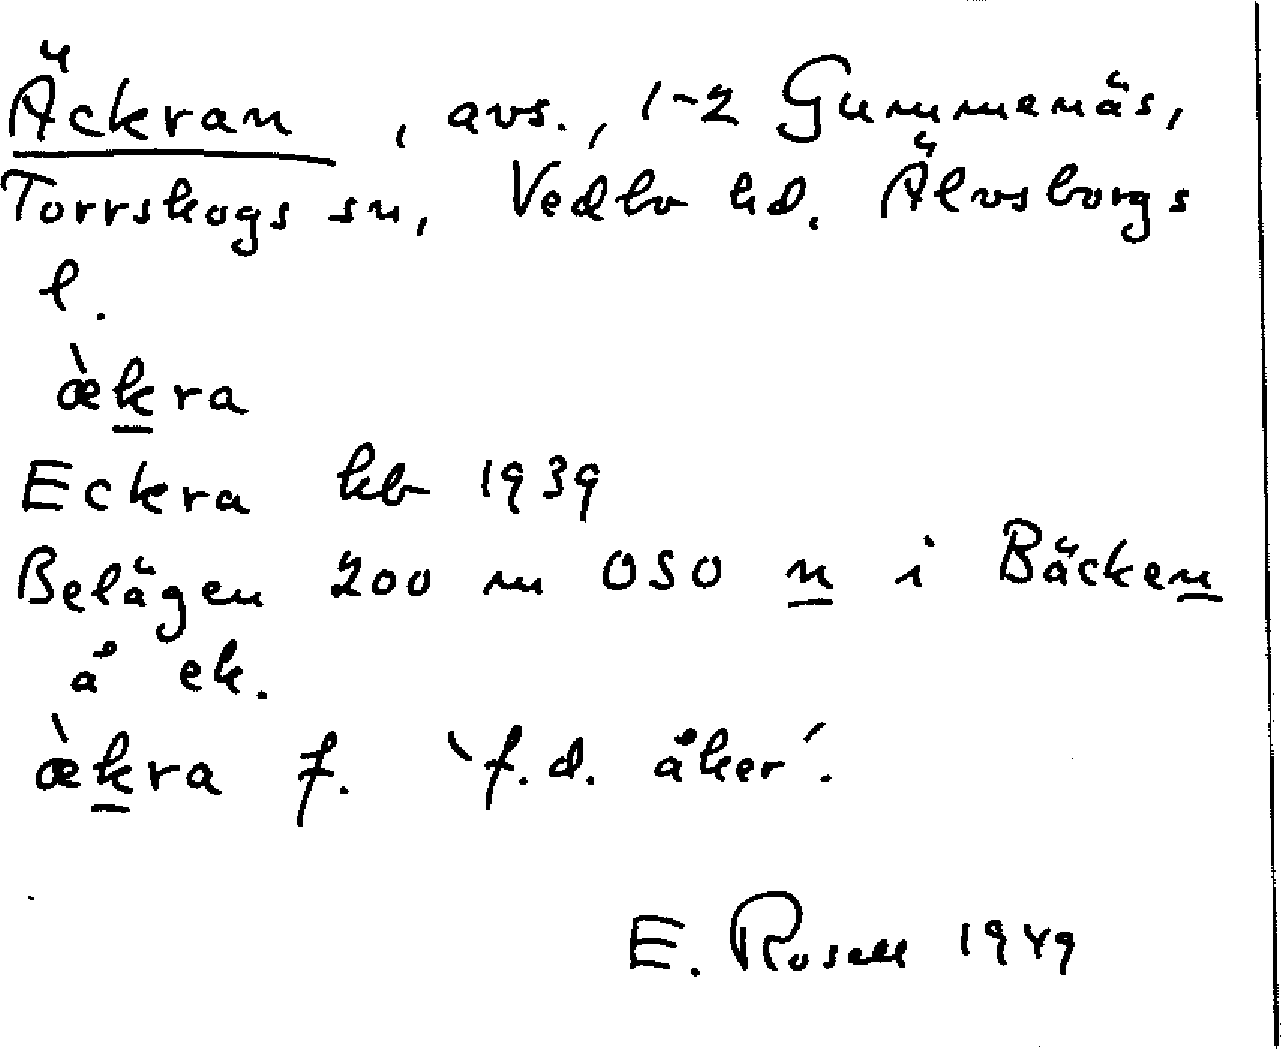 Äckran, avs., 1-2 Gummenäs,
Torrskogs sn, Vedbo hd. Älvsborgs
l.
æ̀kra
Eckra kb 1939
Belägen 200 m OSO n i Bäcken
å ek.
æ̀kra f. `f.d. åker´.
E. Rosell 1949